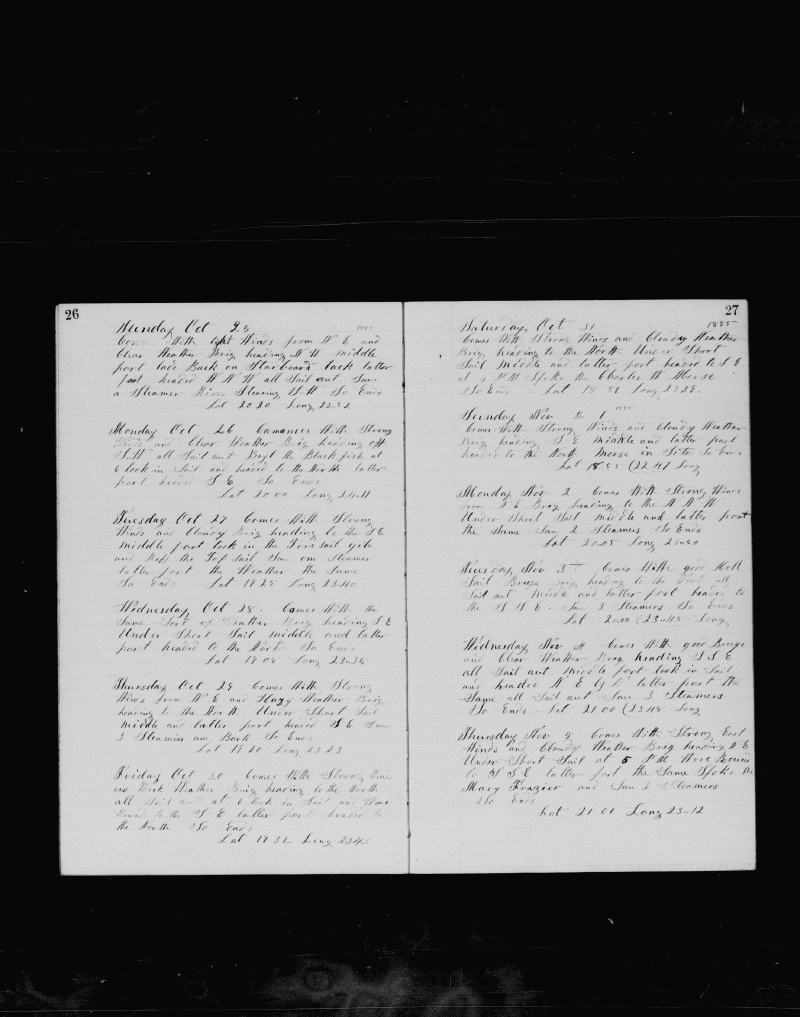 26
Sunday Oct 25
Comes With light Winds from N E and
Clear Weather Brig heading N W middle
part tack Back on Starboard tack latter
part headed W N W all Sail out Saw
a Steamer Stearing S W So Ends
Lat 20 20 Long 23-52
Monday Oct 26 Camances With Strong
Winds and Clear Weather Brig heading off
S W all Sail out the Black fish at
6 took in Sail and headed to the North latter
part headed S E So Ends
Lat 20 00 Long 24-11
Tuesday Oct 27 Comes With Strong
Winds and Cloudy Brig heading to the S E
middle part took in the Fore sail Gib
and the Top Sail Saw one Steamer
latter part the Weather the Same
So Ends Lat 19 25 Long 23-40
Wednesday Oct 28 - Comes With the
Same Sort of Weather Brig heading S E
Under Short Sail middle and latter
part headed to the North So Ends
Lat 19 05 Long 23-35
Thursday Oct 29 Comes With Strong
Winds from N E and Hazy Weather Brig
heading to the North Under Short Sail
middle and latter part headed S E Saw
3 Steamers one Bark So Ends
Lat 19 20 Long 23 23
Friday Oct 30 Comes With Strong Winds
and Thick Weather Brig heading to the North
all Sail out at 6 took in Sail and Wore
Round to the S E latter part headed to
the North So Ends
Lat 19 32 Long 23-45
27
Saturday Oct 31 1885
Comes With Strong Winds and Cloudy Weather
Brig heading to the North Under Short
Sail Middle and latter part headed to S E
at PM Spoke the Charles W Morse
So Ends Lat 18 Long 23 28.
Sunday Nov the 1
Comes With Strong Winds and Cloudy Weather
Brig heading S E middle and latter part
headed to the North Morse in Site So Ends
Lat 18-55 (22 47 Long
Monday Nov 2 Comes With Strong Winds
from N E Brig heading to the N N W
Under Short Sail middle and latter part
the Same Saw 2 Steamers So Ends
Lat 20-05 Long 23-50
Tuesday Nov 3 Comes With good Holl
Sail Breeze Brig heading to the North all
Sail out middle and latter part headed to
the S S E - Saw 3 Steamers So Ends
Lat 21-00 (23-45 Long
Wednesday Nov 4 Comes With good Breeze
and Clear Weather Brig heading S S E
all Sail out middle part took in Sail
and headed N E latter part the
Same all Sail out Saw 3 Steamers
So Ends Lat 21 00 (23-48 Long
Thursday Nov 5 Comes With Strong East
Winds and Cloudy Weather Brig heading N E
Under Short Sail at 5 P M Wore Round
to S S E latter part the Same Spoke the
Mary Frazier and Saw 2 Steamers
So Ends
Lat 21 01 Long 23-12